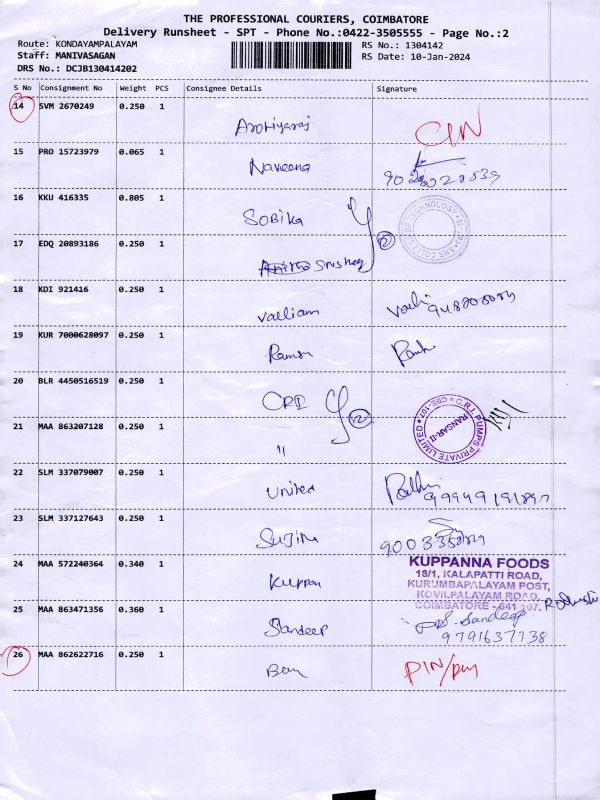 THE PROFESSIONAL COURIERS, COIMBATORE
Delivery Runsheet - SPT - Phone No.:0422-3505555 - Page No.:2
Route: KONDAYAMPALAYAM RS No.: 1304142
Staff: MANIVASAGAN RS Date: 10-Jan-2024
DRS No.: DCJB130414202
S No Consignment No Weight PCS Consignee Details Signature
14 SVM 2670249 0.250 1
CIN
15 PRO 15723979 0.065 1
Naveena
16 KKU 416335 0.805 1
Sobika
17 EDQ 20893186 0.250 1
2
18 KDI 921416 0.250 1
valliam Valli
19 KUR 7000628097 0.250 1
20 BLR 4450516519 0.250 1
CRI
C.R.I. PUMPS PRIVATE LIMITED CBE-107
RANSAR-II
21 MAA 863207128 0.250 1
11
22 SLM 337079007 0.250 1
United
23 SLM 337127643 0.250 1
Sujita
24 MAA 572240364 0.340 1
KUPPANNA FOODS
18/1, KALAPATTI ROAD,
KURUMBAPALAYAM POST,
KOVILPALAYAM ROAD,
COIMBATORE - 641 107.
25 MAA 863471356 0.360 1
Sandeep Sandeep
9791637738
26 MAA 862622716 0.250 1
PIN/